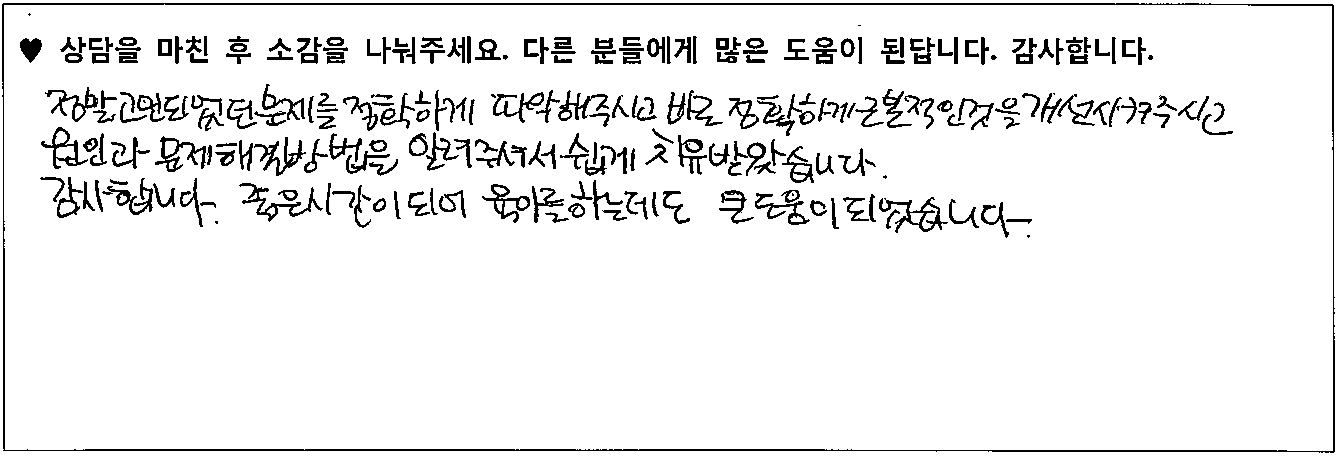 ♥ 상담을 마친 후 소감을 나눠주세요. 다른 분들에게 많은 도움이 된답니다. 감사합니다.
정말 고민되었던 문제를 정확하게 파악해주시고 바로 정확하게 근본적인것을 개선시켜주시고
원인과 문제해결방법을 알려주셔서 쉽게 치유받았습니다.
감사합니다. 좋은시간이 되어 육아를하는데도 큰도움이되었습니다.